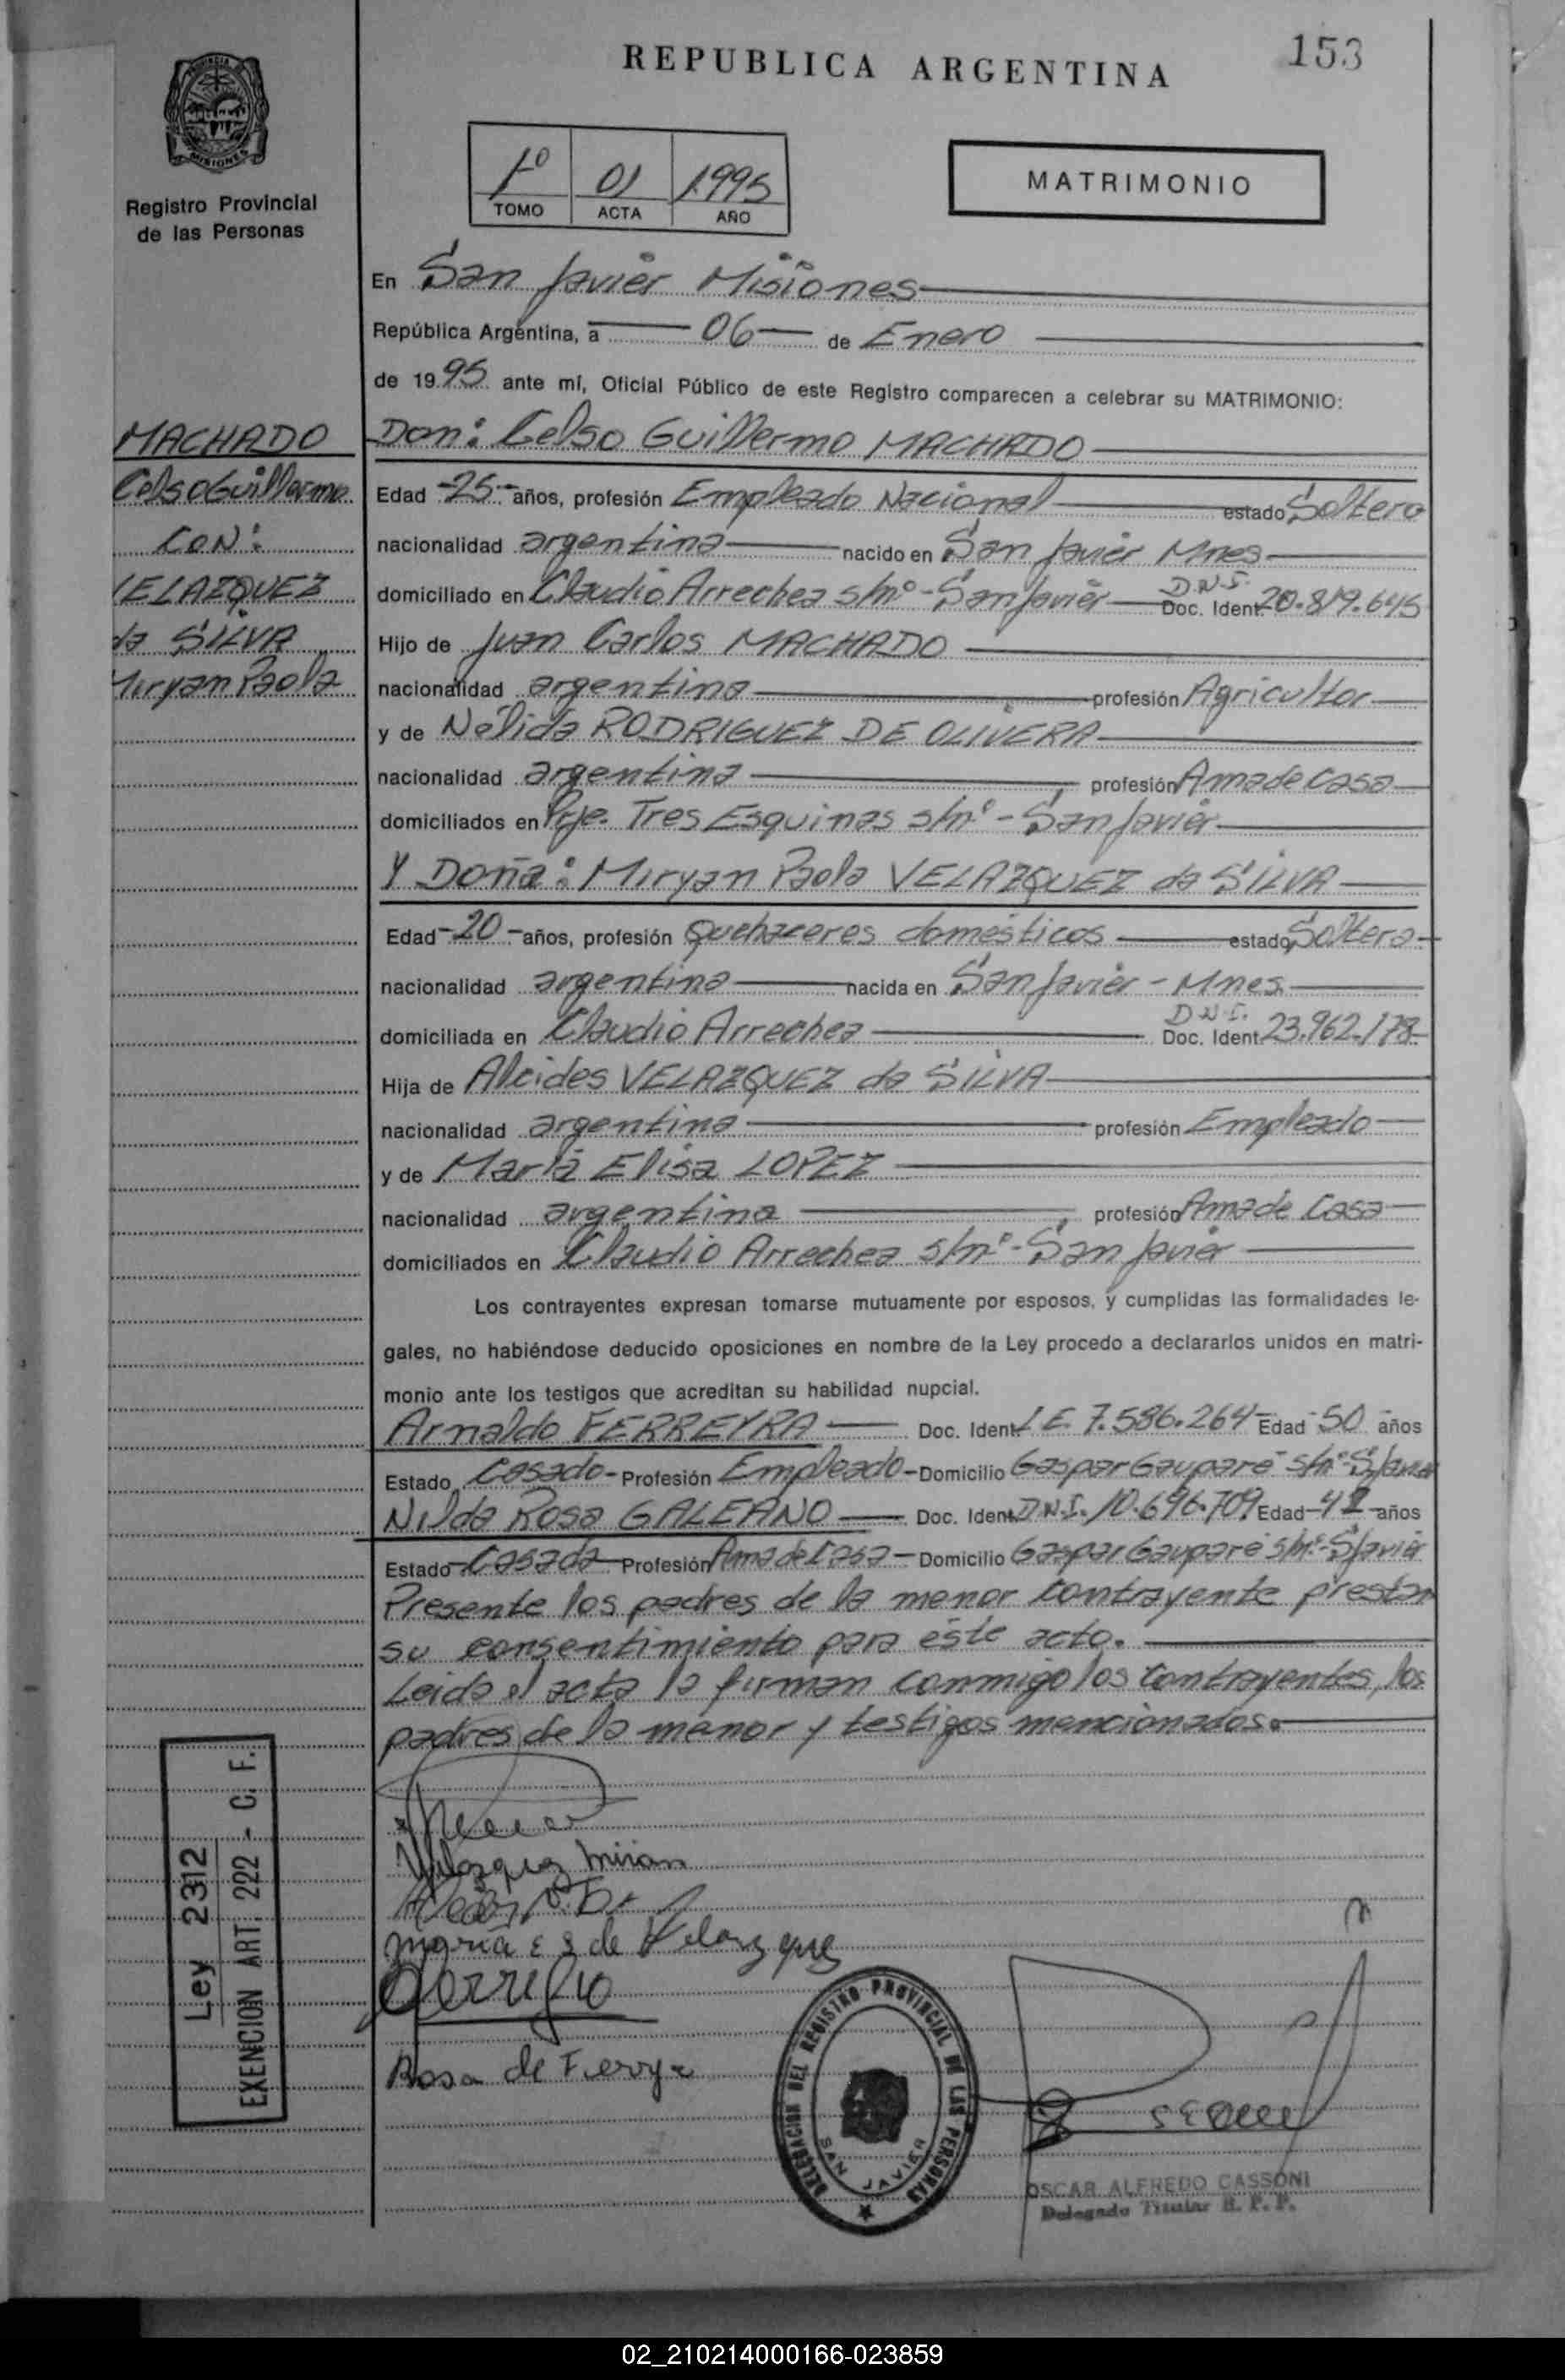 153
REPUBLICA ARGENTINA
PROVINCIA DE MISIONES
Registro Provincial
de las Personas
1º 01 1995
TOMO ACTA AÑO
MATRIMONIO
En San Javier Misiones
República Argentina, a 06 de Enero
de 1995 ante mí, Oficial Público de este Registro comparecen a celebrar su MATRIMONIO:
MACHADO
Celso Guillermo
CON:
VELAZQUEZ
da SILVA
Miryan Paola
Don: Celso Guillermo MACHADO
Edad -25- años, profesión Empleado Nacional estado Soltero
nacionalidad argentina nacido en San Javier Mnes
domiciliado en Claudio Arrechea s/nº - San Javier D.N.I. Doc. Ident. 20.819.645
Hijo de Juan Carlos MACHADO
nacionalidad argentina profesión Agricultor
y de Nélida RODRIGUEZ DE OLIVERA
nacionalidad argentina profesión Ama de Casa
domiciliados en Pje. Tres Esquinas s/nº - San Javier
Y Doña: Miryan Paola VELAZQUEZ da SILVA
Edad -20- años, profesión Quehaceres domésticos estado Soltera
nacionalidad argentina nacida en San Javier - Mnes.
domiciliada en Claudio Arrechea D.N.I. Doc. Ident. 23.962.178
Hija de Alcides VELAZQUEZ da SILVA
nacionalidad argentina profesión Empleado
y de María Elisa LOPEZ
nacionalidad argentina profesión Ama de Casa
domiciliados en Claudio Arrechea s/nº - San Javier
Los contrayentes expresan tomarse mutuamente por esposos, y cumplidas las formalidades le-
gales, no habiéndose deducido oposiciones en nombre de la Ley procedo a declararlos unidos en matri-
monio ante los testigos que acreditan su habilidad nupcial.
Arnaldo FERREYRA Doc. Ident. L E 7.586.264 Edad 50 años
Estado Casado - Profesión Empleado - Domicilio Gaspar Gauparé s/nº - S/Javier
Nilda Rosa GALEANO Doc. Ident. D.N.I. 10.696.709 Edad -42- años
Estado Casada Profesión Ama de Casa - Domicilio Gaspar Gauparé s/nº - S/Javier
Presente los padres de la menor contrayente prestan
su consentimiento para éste acto.
Leida el acta la firman conmigo los contrayentes, los
padres de la menor y testigos mencionados.
Velazquez Mirian
Maria E L de Velazquez
Rosa de Ferreyra
Ley 2312
EXENCION ART. 222 - C. F.
DELEGACION DEL REGISTRO PROVINCIAL DE LAS PERSONAS
SAN JAVIER
OSCAR ALFREDO CASSONI
Delegado Titular R. P. P.
02_210214000166-023859